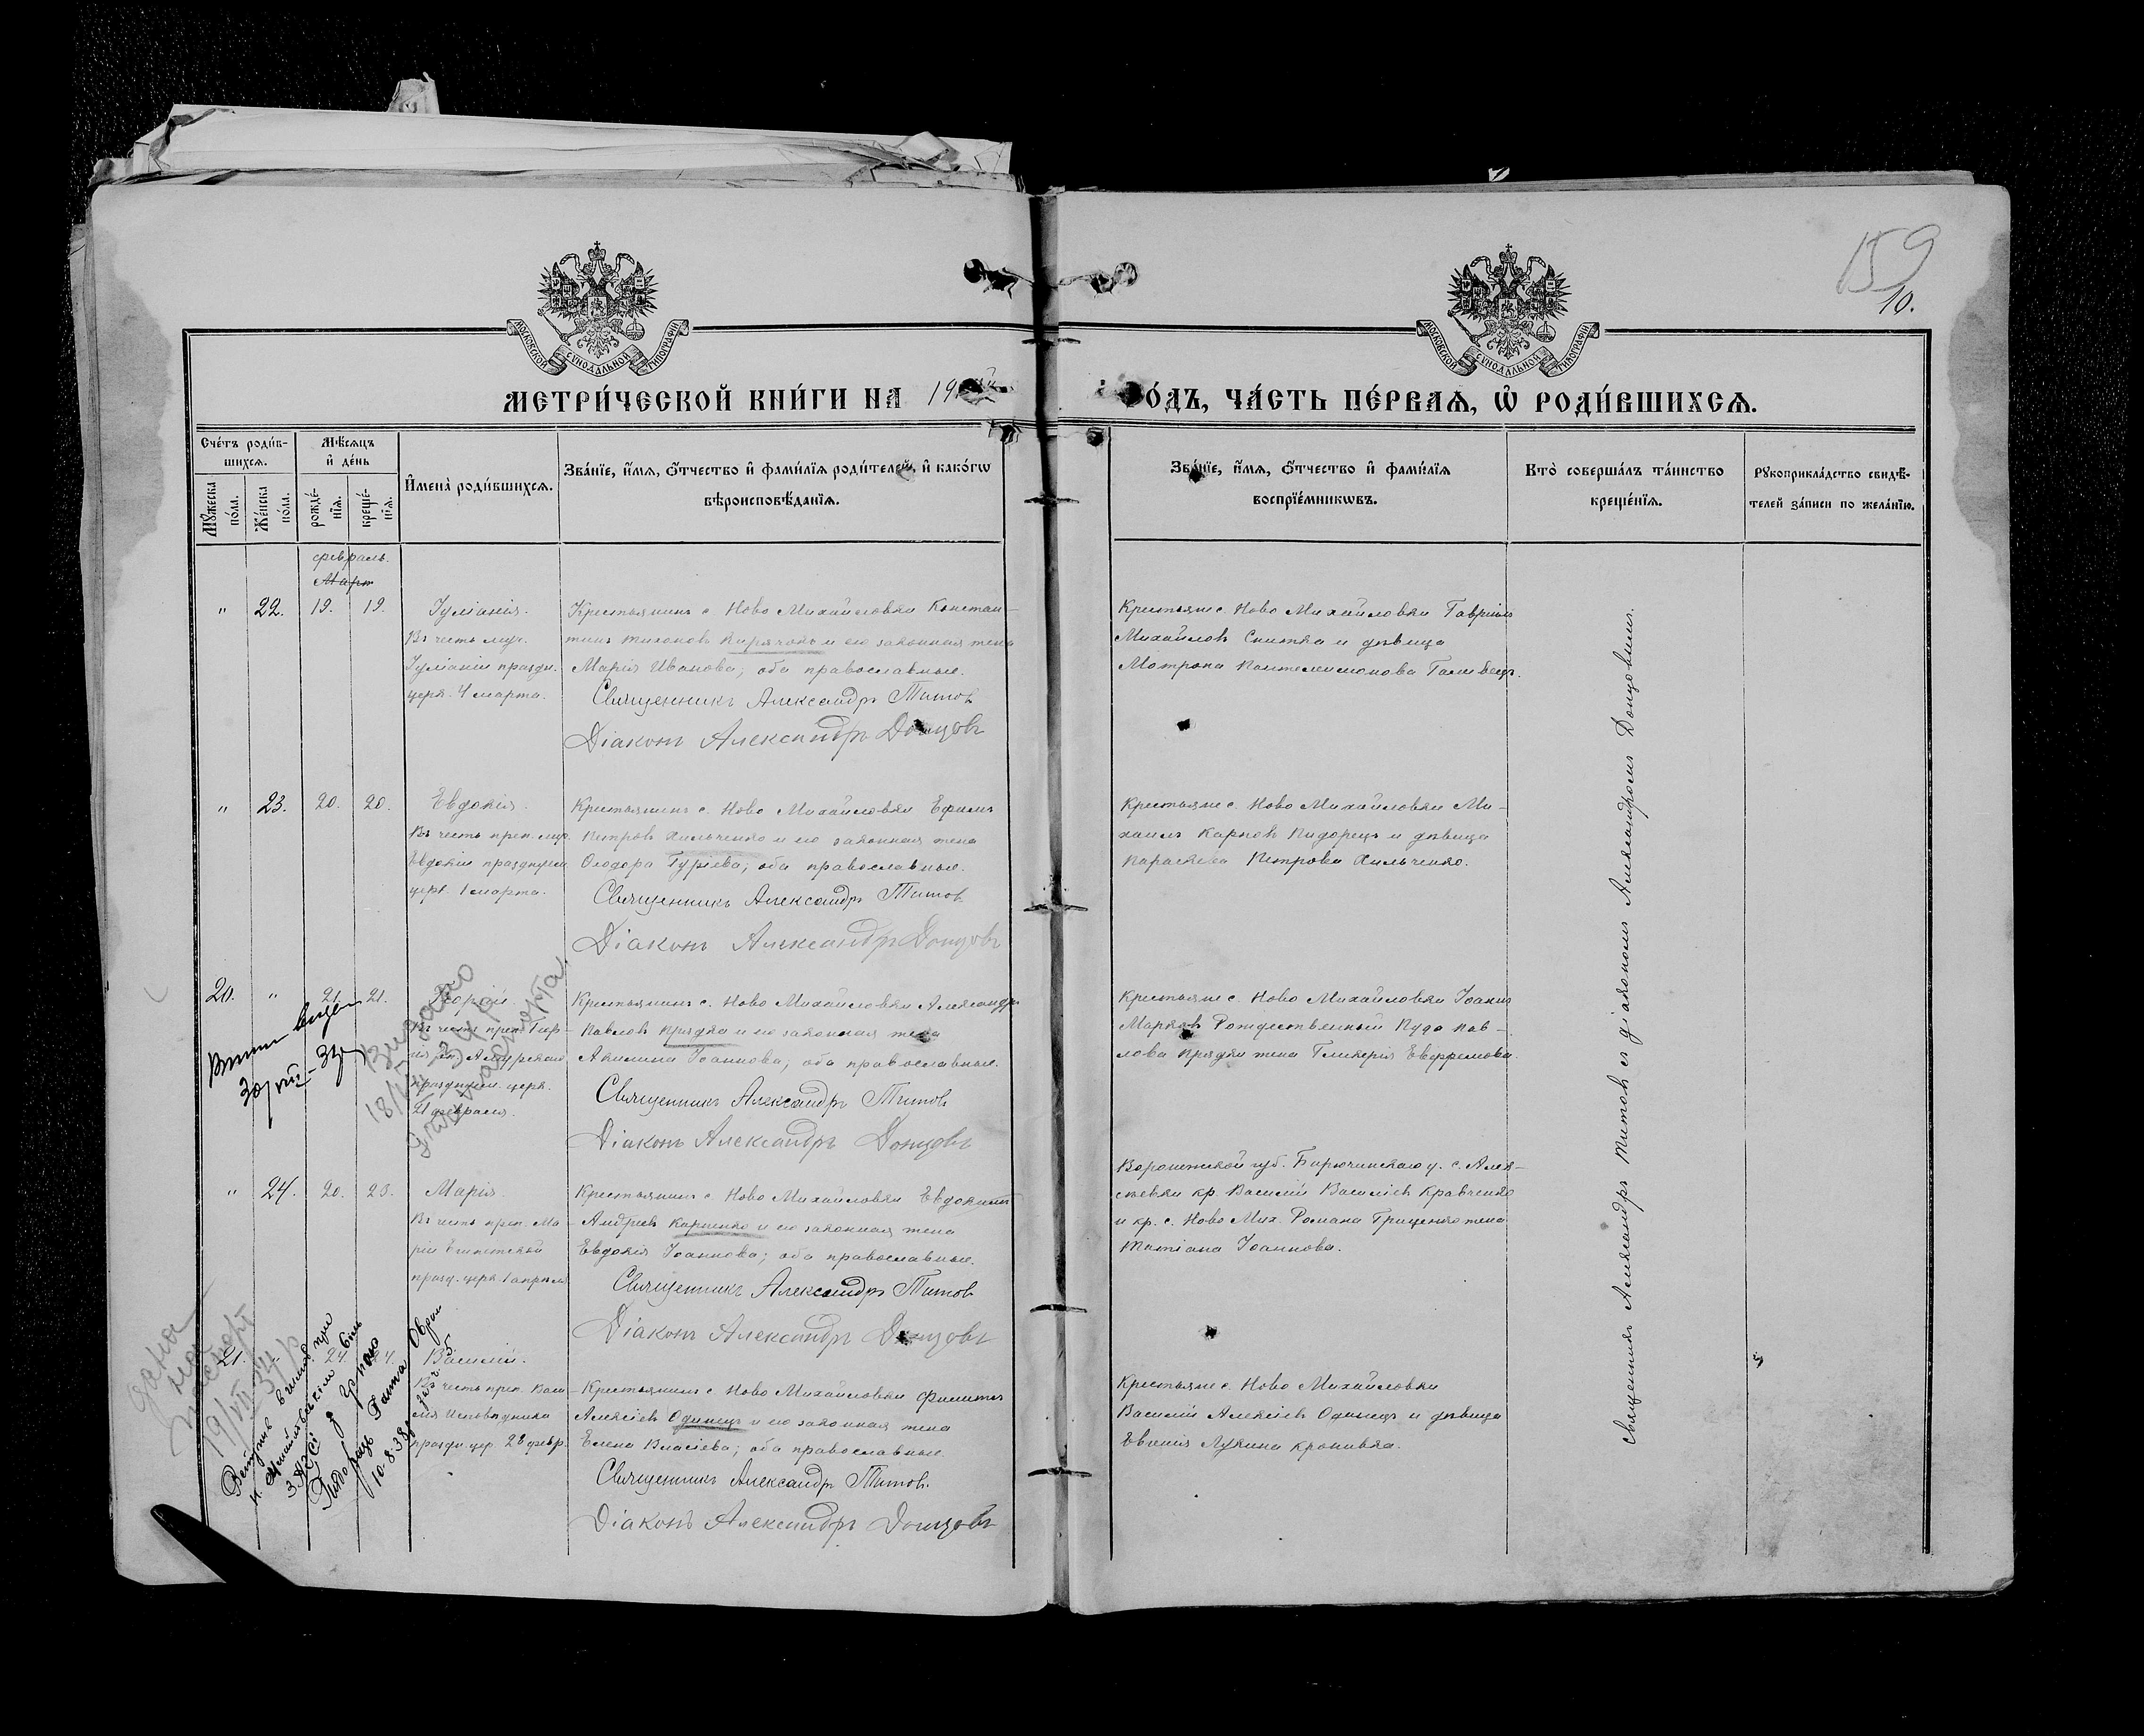 159
10.
МОСКОВСКОЙ СѴНОДАЛЬНОЙ ТИПОГРАФІИ
МОСКОВСКОЙ СѴНОДАЛЬНОЙ ТИПОГРАФІИ
МЕТРИ́ЧЕСКОЙ КНИ́ГИ НА 19
О́ДЪ, ЧА́СТЬ ПЕ́РВАѦ, Ѡ҆ РОДИ́ВШИХСѦ.
Сче́тъ роди́в-
шихсѧ.
Мѣ́сѧцъ
и҆ де́нь
Мꙋ́жеска по́ла.
Же́нска по́ла.
рожде́-нїѧ.
креще́-нїѧ.
И҆мена̀ роди́вшихсѧ.
Зва́нїе, и҆́мѧ, ѻ҆́тчество и҆ фами́лїѧ роди́телей, и҆ како́гѡ
вѣроисповѣ́данїѧ.
Зва́нїе, и҆́мѧ, ѻ҆́тчество и҆ фами́лїѧ
воспрїе́мникѡвъ.
Кто̀ соверша́лъ та́инство
креще́нїѧ.
Рꙋкоприкла́дство свидѣ́-
телей за́писи по жела́нїю.
февраль.
Март
" 22. 19. 19. Іуліанія.
Въ честь муч.
Іуліаніи праздн.
церк. 4 марта.
Крестьянинъ с. Ново Михайловки Констан-
тинъ Тихоновъ Кирячокъ и его законная жена
Марія Иванова; оба православные.
Священникъ Александръ Титов
Діаконъ Александръ Донцовъ
Крестьяне с. Ново Михайловки Гавріилъ
Михайловъ Снитка и дѣвица
Мотрона Пантелеимонова
" 23. 20. 20. Евдокія.
Въ честь преп. муч.
Евдокіи празднуем.
церк. 1 марта.
Крестьянинъ с. Ново Михайловки Ефимъ
Петровъ Хильченко и его законная жена
Ѳеодора Гуріева; оба православные.
Священникъ Александръ Титов
Діаконъ Александръ Донцовъ
Крестьяне с. Ново Михайловки Ми-
хаилъ Карповъ Пидорецъ и дѣвица
Параскева Петрова Хильченко.
20. " 21. 21. Георгій.
Въ честь преп. Геор-
гія еп. Амурскаго
празднуем. церк.
21 февраля.
Крестьянинъ с. Ново Михайловки Александръ
Павловъ Прядка и его законная жена
Акилина Іоаннова; оба православные.
Священникъ Александръ Титов
Діаконъ Александръ Донцовъ
Крестьяне с. Ново Михайловки Іоаннъ
Марковъ Рождественный Пав-
лова Прядки жена Гликерія Евфремова.
30/VIII-33
Видано
" 24. 20. 23. Марія.
Въ честь преп. Ма-
ріи Египетской
празд. церк. 1 апрѣля
Крестьянинъ с. Ново Михайловки Евдокимъ
Андреевъ Карпенко и его законная жена
Евдокія Іоаннова; оба православные.
Священникъ Александръ Титов
Діаконъ Александръ Донцовъ
Воронежской губ. Бирюченскаго у. с. Алек-
сѣевки кр. Василій Василіевъ Кравченко
и кр. с. Ново Мих. Романа Гриценко жена
Татіана Іоаннова.
21. " 24. 24. Василій.
Въ честь преп. Васи-
лія Исповѣдника
праздн. цер. 28 февр.
Крестьянинъ с. Ново Михайловки Филиппъ
Алексіевъ Одинецъ и его законная жена
Елена Власіева; оба православные.
Священникъ Александръ Титов.
Діаконъ Александръ Донцовъ
Крестьяне с. Ново Михайловки
Василій Алексіевъ Одинецъ и дѣвица
Евгенія Лукина Кропивка.
дана
на
паспорт
19/VII 34 р
10.8.38
Священникъ Александръ Титовъ съ діакономъ Александромъ Донцовымъ.